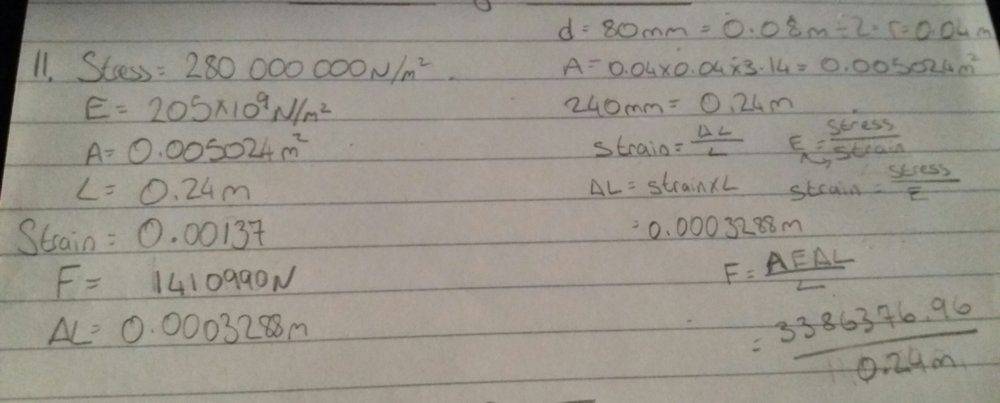 11. Stress = 280 000 000N/m²
E = 205×10⁹N/m²
A = 0.005024m²
L = 0.24m
Strain = 0.00137
F = 1410990N
ΔL = 0.0003288m
d = 80mm = 0.08m ÷ 2 · r = 0.04m
A = 0.04×0.04×3.14 = 0.005024m²
240mm = 0.24m
Strain = ΔL/L
E = Stress/Strain
ΔL = strain×L
strain = stress/E
= 0.0003288m
F = AEΔL/L
= 3386376.96/0.24m